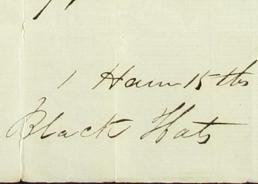 1 Ham 15 lbs
Black Hats